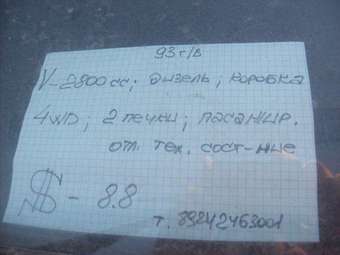 93 г/в
V-2800 сс; дизель; коробка
4WD; 2 печки; пасажир.
отл. тех. сост-ние
$ - 8.8
т. 89242463001